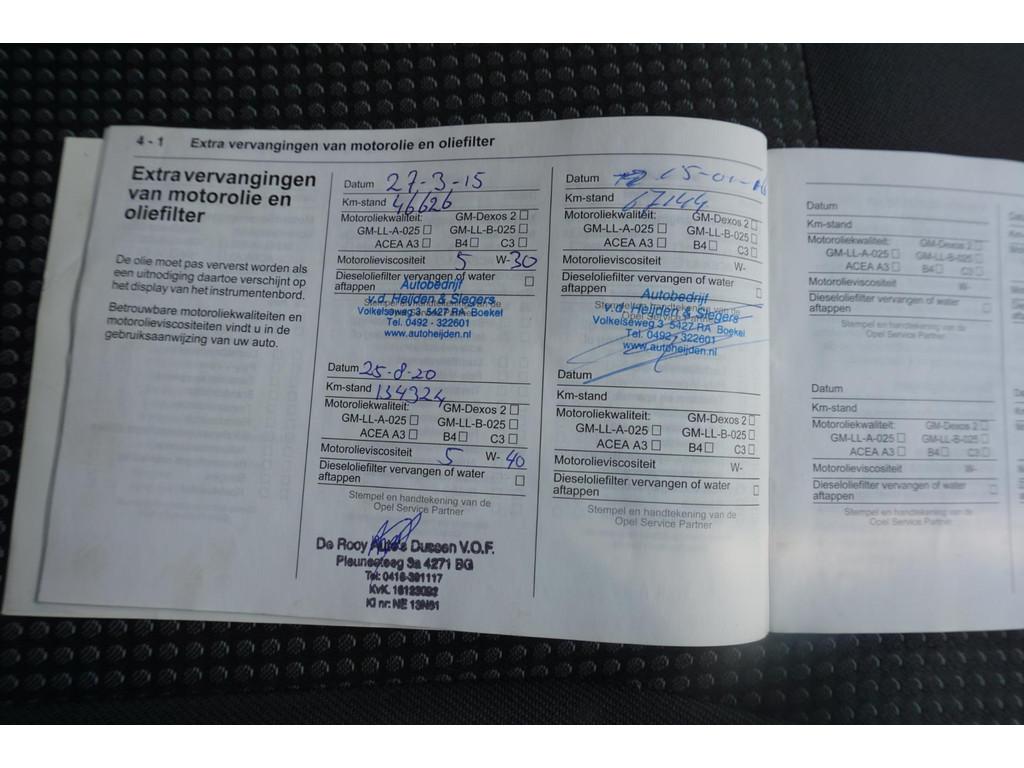 4 - 1 Extra vervangingen van motorolie en oliefilter
Extra vervangingen
van motorolie en
oliefilter
De olie moet pas ververst worden als
een uitnodiging daartoe verschijnt op
het display van het instrumentenbord.
Betrouwbare motoroliekwaliteiten en
motorolieviscositeiten vindt u in de
gebruiksaanwijzing van uw auto.
Datum 27-3-15
Km-stand 46626
Motoroliekwaliteit: GM-Dexos 2
GM-LL-A-025 GM-LL-B-025
ACEA A3 B4 C3
Motorolieviscositeit 5 W-30
Dieseloliefilter vervangen of water
aftappen
Autobedrijf
v.d. Heijden & Slegers
Volkelseweg 3 5427 RA Boekel
Tel. 0492 - 322601
www.autoheijden.nl
Datum 25-8-20
Km-stand 134324
Motoroliekwaliteit: GM-Dexos 2
GM-LL-A-025 GM-LL-B-025
ACEA A3 B4 C3
Motorolieviscositeit 5 W-40
Dieseloliefilter vervangen of water
aftappen
Stempel en handtekening van de
Opel Service Partner
De Rooy Auto's Dussen V.O.F.
3a 4271 BG
Tel: 0416-391117
KvK. 18123092
KI nr: NE 13N61
Datum 15-01-16
Km-stand 67144
Motoroliekwaliteit: GM-Dexos 2
GM-LL-A-025 GM-LL-B-025
ACEA A3 B4 C3
Motorolieviscositeit W-
Dieseloliefilter vervangen of water
aftappen
Autobedrijf
v.d. Heijden & Slegers
Volkelseweg 3 5427 RA Boekel
Tel. 0492 - 322601
www.autoheijden.nl
Datum
Km-stand
Motoroliekwaliteit: GM-Dexos 2
GM-LL-A-025 GM-LL-B-025
ACEA A3 B4 C3
Motorolieviscositeit W-
Dieseloliefilter vervangen of water
aftappen
Stempel en handtekening van de
Opel Service Partner
Datum
Km-stand
Motoroliekwaliteit: GM-Dexos 2
GM-LL-A-025 GM-LL-B-025
ACEA A3 B4 C3
Motorolieviscositeit W-
Dieseloliefilter vervangen of water
aftappen
Stempel en handtekening van de
Opel Service Partner
Datum
Km-stand
Motoroliekwaliteit: GM-Dexos 2
GM-LL-A-025 GM-LL-B-025
ACEA A3 B4 C3
Motorolieviscositeit W-
Dieseloliefilter vervangen of water
aftappen
Stempel en handtekening van de
Opel Service Partner